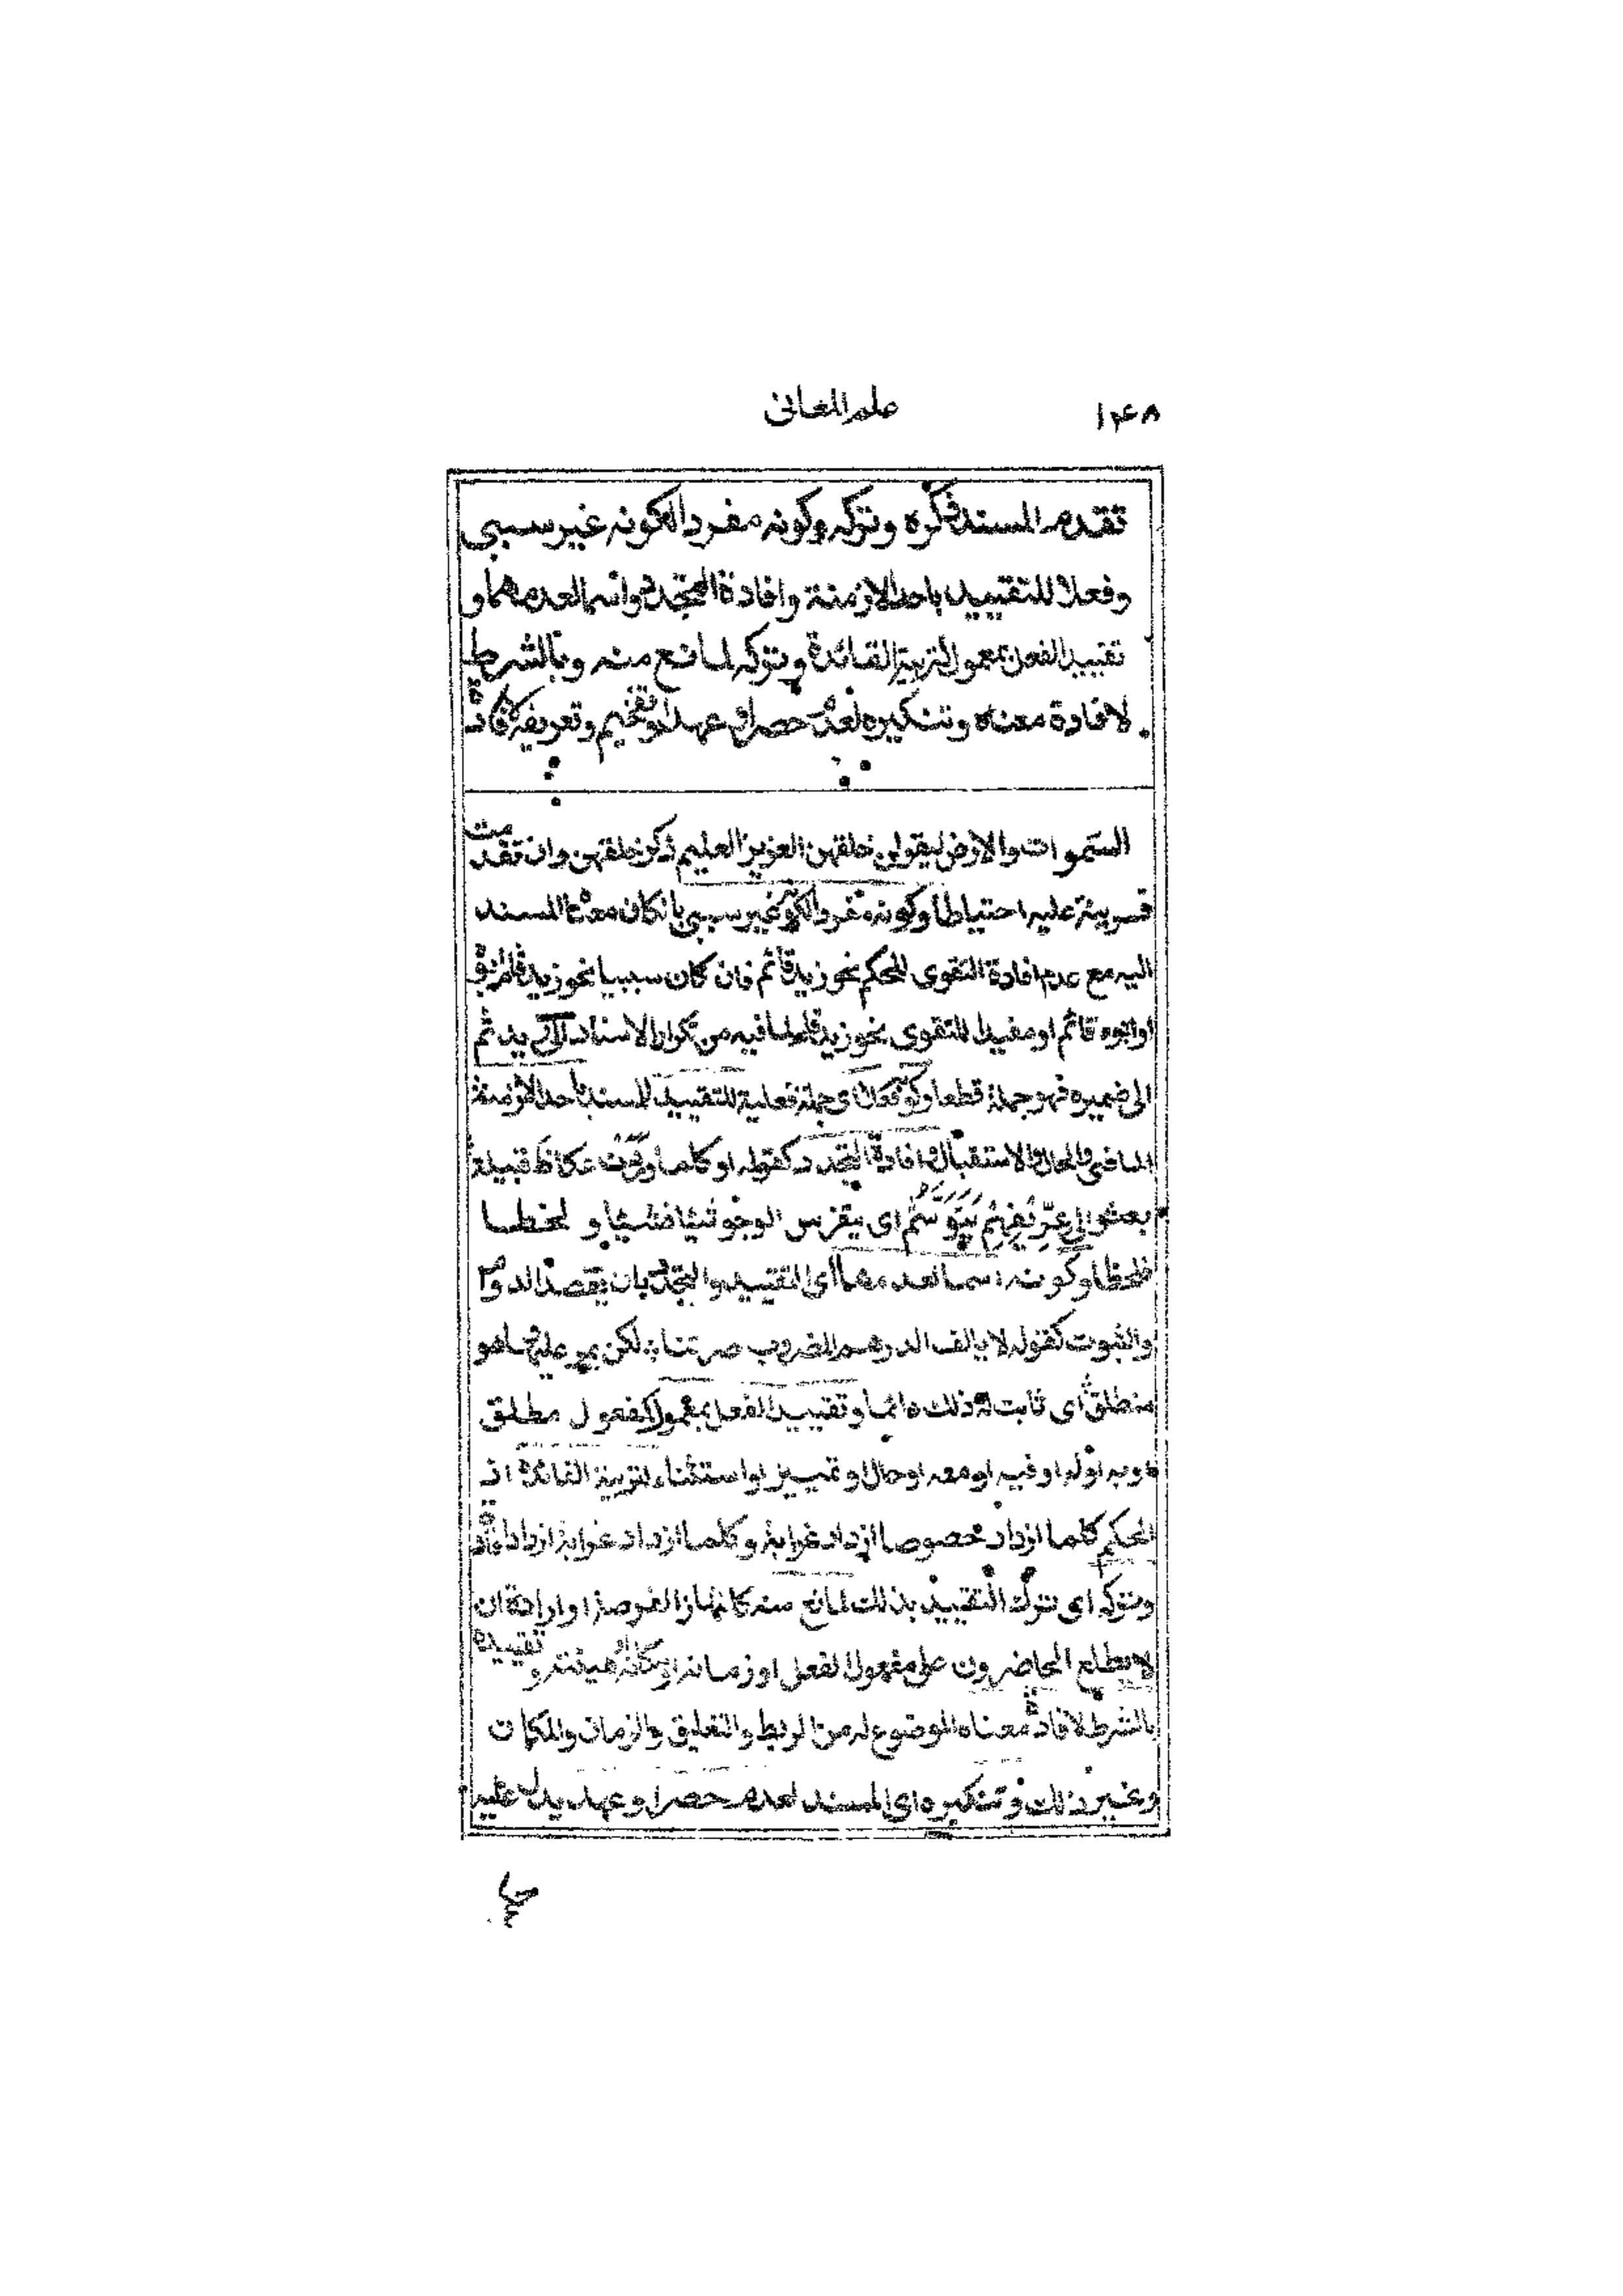 ۱۴۸ علم المعانی
تقدم المسند ذكره وتركه وكونه مفردا لكونه غير سببی
وفعلا للتقييد باحد الازمنة وافادة التجدد واسما لعدمهما و
تقييد الفعل بمعمول لتربية الفائدة وتركه لمانع منه وبالشرط
لافادة معناه وتنكيره لعدم حصر او عهد او تفخيم وتعريفه لافادة
السموات والارض ليقولن خلقهن العزيز العليم ذكر خلقهن وان تقدمت
قرينة عليه احتياطا وكونه مفردا لكونه غير سببی بان كان معناه للمسند
اليه مع عدم افادة التقوی للحكم نحو زيد قائم فان كان سببيا نحو زيد قام ابوه
او ابوه قائم او مفيدا للتقوی نحو زيد قام لما فيه من تكرار الاسناد الی زيد ثم
الی ضميره فهو جملة قطعا وكونه فعلا ای جملة فعلية للتقييد للمسند باحد الازمنة
الماضی والحال والاستقبال وافادة التجدد كقوله او كلما وردت عكاظ قبيلة
بعثوا الی عريفهم يتوسم ای يتفرس الوجوه شيئا فشيئا و لحظا
فلحظا وكونه اسما لعدمهما ای التقييد والتجدد بان يقصد الدوام
والثبوت كقوله لا يالف الدرهم المضروب صرتنا ؛ لكن يمر عليها وهو
منطلق ای ثابت له ذلك دائما وتقييد الفعل بمعمول كمفعول مطلق
او به او له او فيه او معه او حال او تمييز او استثناء لتربية الفائدة اذ
الحكم كلما ازداد خصوصا ازداد غرابة وكلما ازداد غرابة ازداد افادة
وتركه ای ترك التقييد بذلك لمانع منه كانتهاز الفرصة او ارادة ان
لا يطلع الحاضرون علی مفعول الفعل او زمانه او مكانه او هيئته و تقييده
بالشرط لافادة معناه الموضوع له من الربط والتعليق والزمان والمكان
وغير ذلك وتنكيره ای المسند لعدم حصر او عهد يدل عليه